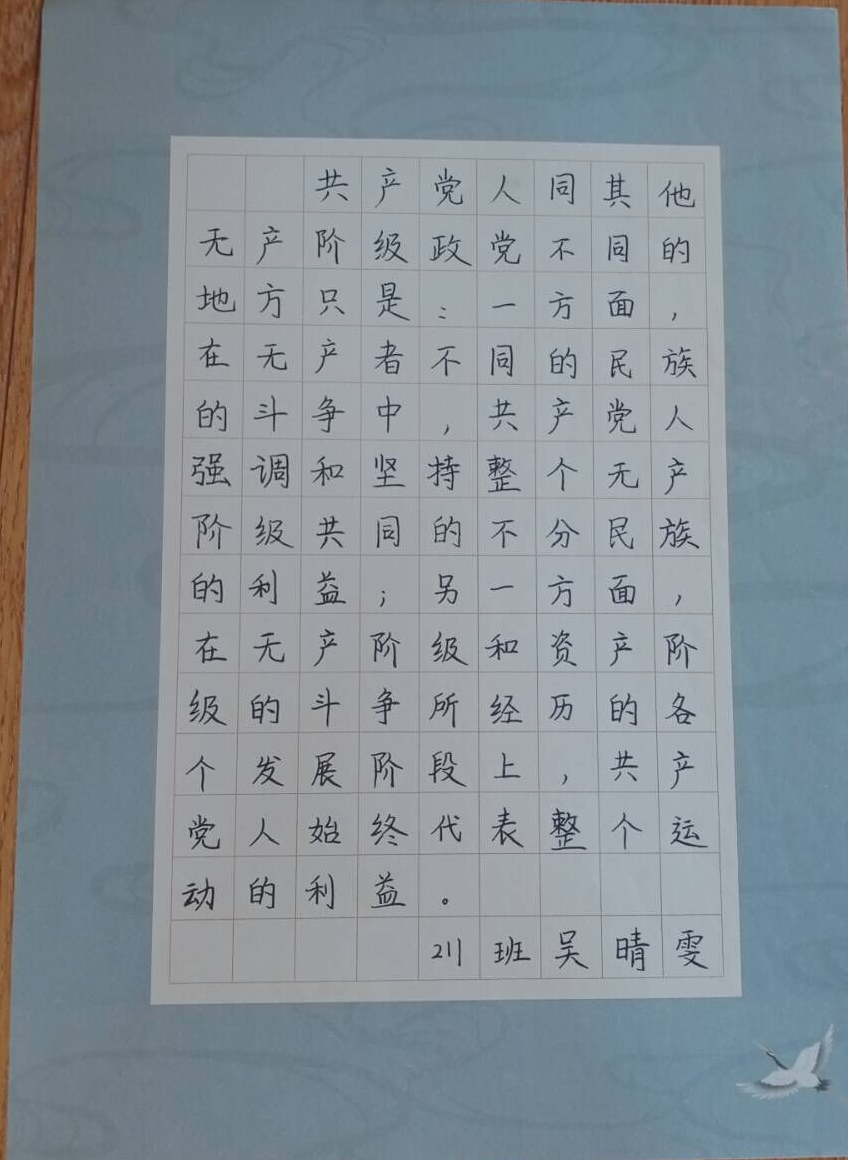 共产党人同其他
无产阶级政党不同的
地方只是：一方面，
在无产者不同的民族
的斗争中，共产党人
强调和坚持整个无产
阶级共同的不分民族
的利益；另一方面，
在无产阶级和资产阶
级的斗争所经历的各
个发展阶段上，共产
党人始终代表整个运
动的利益。
211班吴晴雯